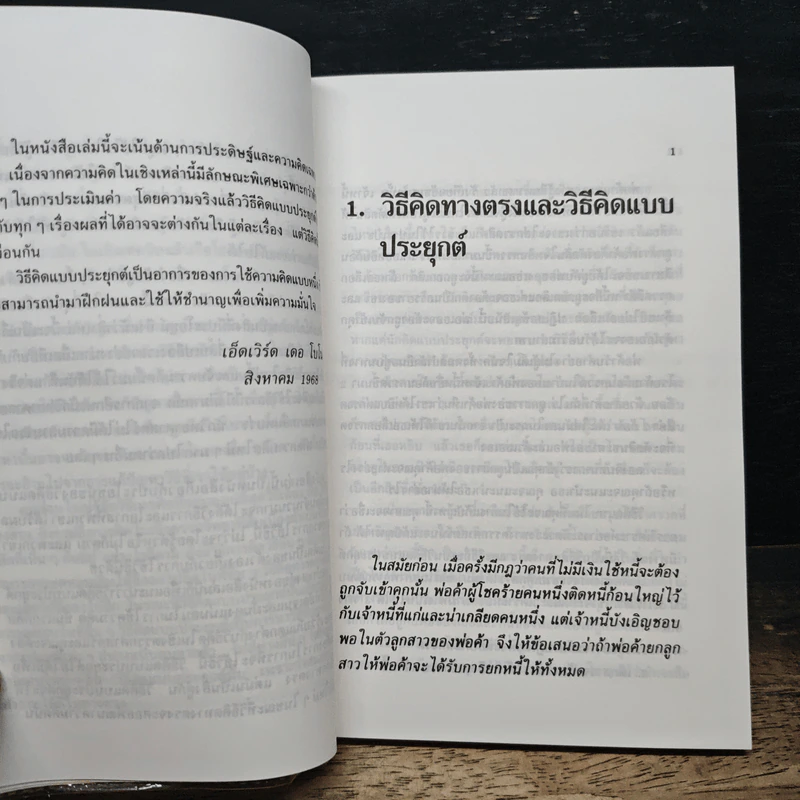 ในหนังสือเล่มนี้จะเน้นด้านการประดิษฐ์และความคิด
เนื่องจากความคิดในเชิงเหล่านี้มีลักษณะพิเศษเฉพาะกว่า
ๆ ในการประเมินค่า โดยความจริงแล้ววิธีคิดแบบประยุกต์
ทุก ๆ เรื่องผลที่ได้อาจจะต่างกันในแต่ละเรื่อง แต่วิธี
กัน
วิธีคิดแบบประยุกต์เป็นอาการของการใช้ความคิดแบบหนึ่ง
สามารถนำมาฝึกฝนและใช้ให้ชำนาญเพื่อเพิ่มความมั่นใจ
เอ็ดเวิร์ด เดอ โบโน
สิงหาคม 1968
1
1. วิธีคิดทางตรงและวิธีคิดแบบ
ประยุกต์
ในสมัยก่อน เมื่อครั้งมีกฎว่าคนที่ไม่มีเงินใช้หนี้จะต้อง
ถูกจับเข้าคุกนั้น พ่อค้าผู้โชคร้ายคนหนึ่งติดหนี้ก้อนใหญ่ไว้
กับเจ้าหนี้ที่แก่และน่าเกลียดคนหนึ่ง แต่เจ้าหนี้บังเอิญชอบ
พอในตัวลูกสาวของพ่อค้า จึงให้ข้อเสนอว่าถ้าพ่อค้ายกลูก
สาวให้พ่อค้าจะได้รับการยกหนี้ให้ทั้งหมด